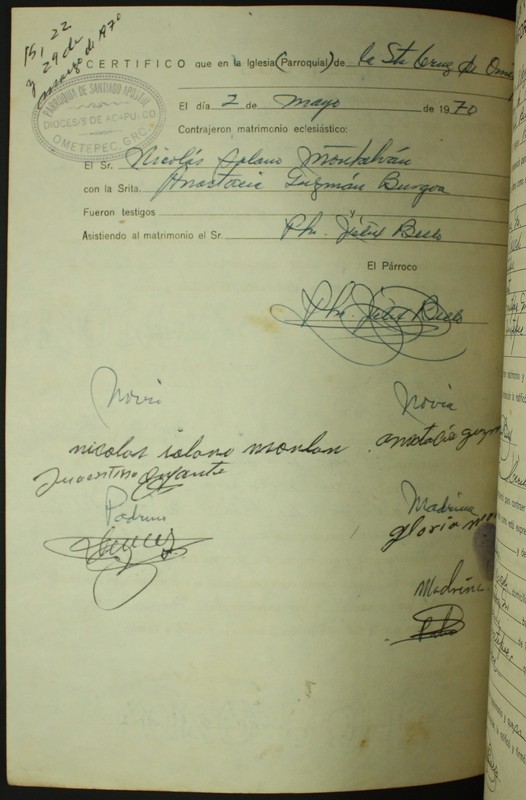 15, 22
y 29 de
marzo de 1970
CERTIFICO que en la Iglesia (Parroquial) de la Sta Cruz de
PARROQUIA DE SANTIAGO APOSTOL
DIOCESIS DE ACAPULCO
OMETEPEC, GRO.
El día 2 de Mayo de 1970
Contrajeron matrimonio eclesiástico:
El Sr. Nicolás Solano Montalván
con la Srita. Anastacia Guzmán Burgoa
Fueron testigos y
Asistiendo al matrimonio el Sr. Pbr. Bello
El Párroco
Pbr. Bello
Novio
Novia
nicolas solano montan
anastacia
Juventino
Padrino
Madrina
gloria
Madrina